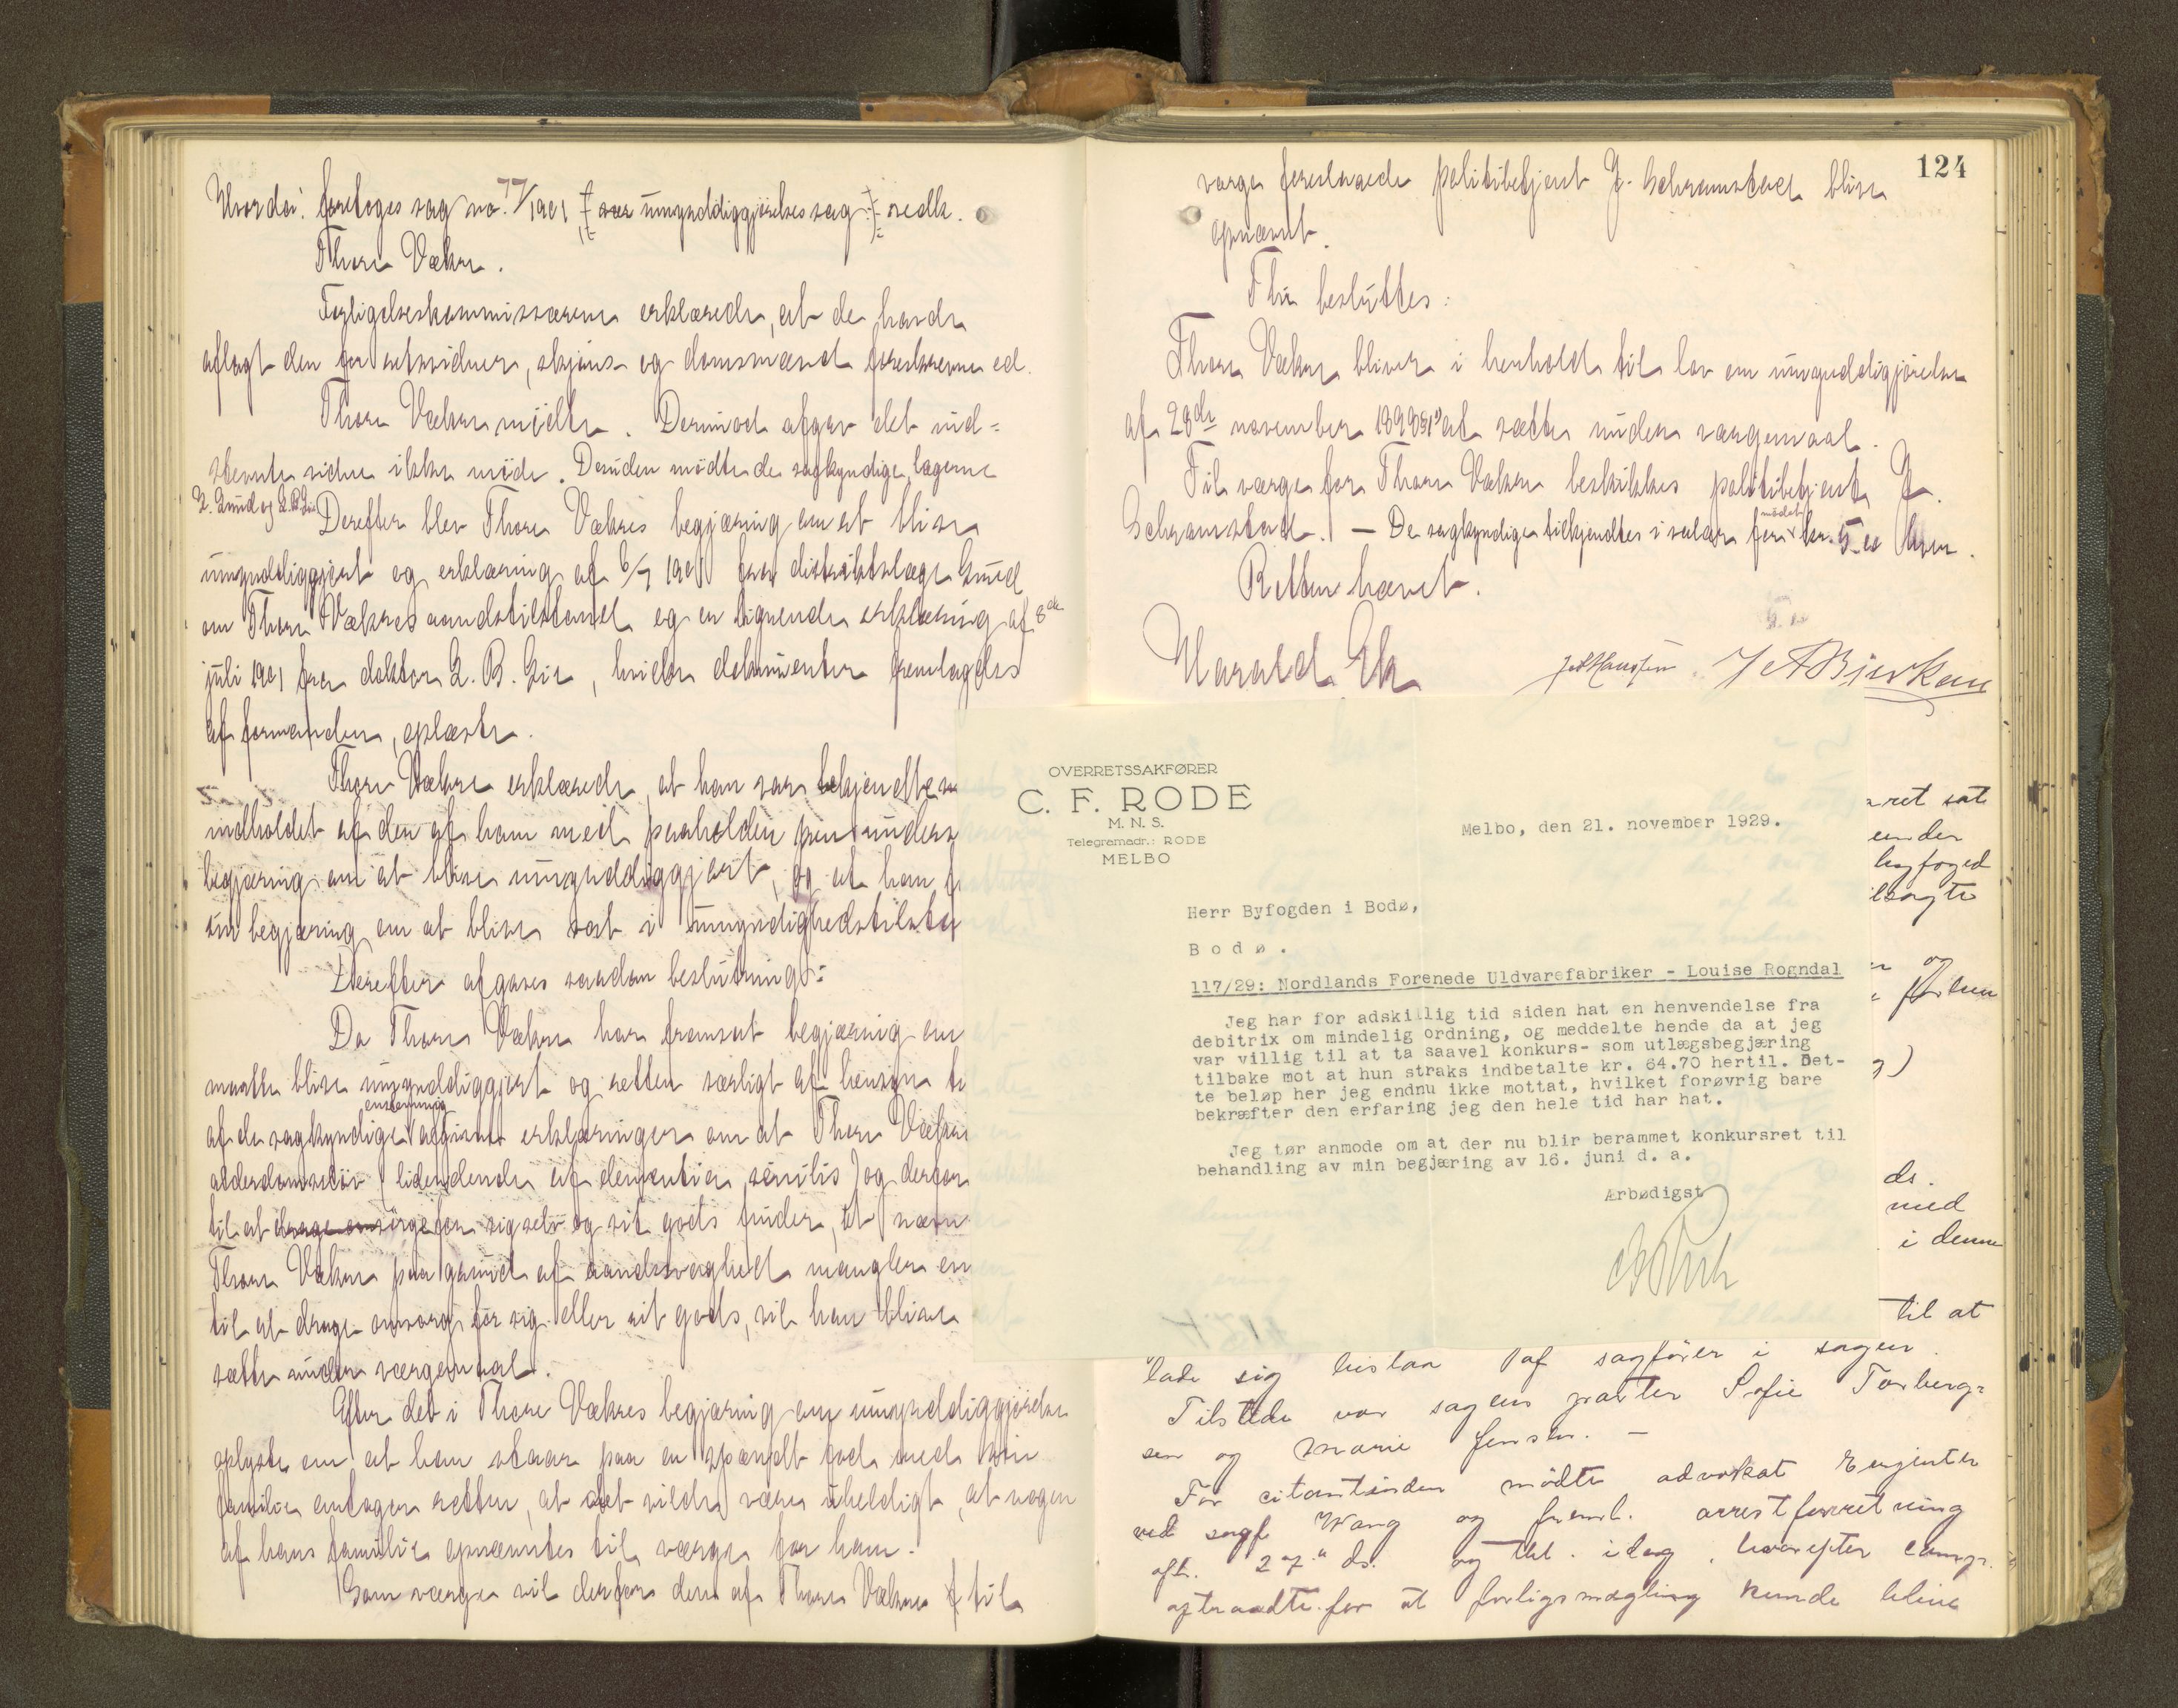 Hvorda: foretoges sag no. 77/1901 (: umyndiggjörelsessag :) vedk.
Thore Vækre.
Forligelseskommissærerne erklærede, at de havde
aflagt den for retsvidner, skjöns- og domsmænd foreskrevne ed.
Thore Vækre mödte. Derimod afgav det ind-
stevnte vidne ikke möde. Desuden mödte de sagkyndige lægerne
Derefter blev Thore Vækres begjæring om at blive
umyndiggjort og erklæring af 6/7 1901 fra distriktslæge
om Thore Vækres aandstilstand og en lignende erklæring af 8de
juli 1901 fra doktor, hvilke dokumenter fremlagdes
af formanden, oplæste.
Thore Vækre erklærede, at han var bekjendt
indholdet af den af ham med paaholden pen unders
begjæring om at blive umyndiggjort, og at han
sin begjæring om at blive sat i umyndighedstilsta
Derefter afgaves saadan beslutning:
Da Thore Vækre har fremsat begjæring om
maatte blive umyndiggjort og retten særligt af hensyn
af de sagkyndige enstemmig afgivne erklæringer om at Thore Vækre
alderdomssløv (lidende af dementia senilis) og derfor
til at sörge for sig selv og sit gods finder, at
Thore Vækre paa grund af aandssvaghed mangler
til at drage omsorg for sig eller sit gods, vil han blive
sætte under værgemaal.
Efter det i Thore Vækres begjæring om umyndiggjörelse
oplyste om at han staar paa en spændt fod med sin
familie antager retten, at det vilde være uheldigt, at nogen
af hans familie opnævntes til værge for ham.
Som værge vil derfor den af Thore Vækre til
124
værge foreslaaede politibetjent J. Schramstad blive
opnævnt.
Thi besluttes:
Thore Vækre bliver i henhold til lov om umyndiggjörelse
af 28de november 1898 at sætte under værgemaal.
Til værge for Thore Vækre beskikkes politibetjent J.
Schramstad. — De sagkyndige tilkjendtes i salær for mödet kr. 5.00 hver.
Retten hævet.
Harald
OVERRETSSAKFØRER
C. F. RODE
M. N. S.
Telegramadr.: RODE
MELBO
Melbo, den 21. november 1929.
Herr Byfogden i Bodø,
Bodø.
117/29: Nordlands Forenede Uldvarefabriker - Louise Rogndal
Jeg har for adskillig tid siden hat en henvendelse fra
debitrix om mindelig ordning, og meddelte hende da at jeg
var villig til at ta saavel konkurs- som utlægsbegjæring
tilbake mot at hun straks indbetalte kr. 64.70 hertil. Det-
te beløp her jeg endnu ikke mottat, hvilket forøvrig bare
bekræfter den erfaring jeg den hele tid har hat.
Jeg tør anmode om at der nu blir berammet konkursret til
behandling av min begjæring av 16. juni d. a.
Ærbødigst
ret sat
under
byfoged
og
ds.
med
i denne
til at
lade sig bistaa af sagfører i sagen.
Tilstede var sagens parter Sofie Torberg-
sen og Marie Jensen. —
For citantinden mödte advokat
ved sagf. Wang og freml. arrestforretning
afh. 27de ds. og till. idag, hvorefter
aftraadte for at forligsmægling kunde blive